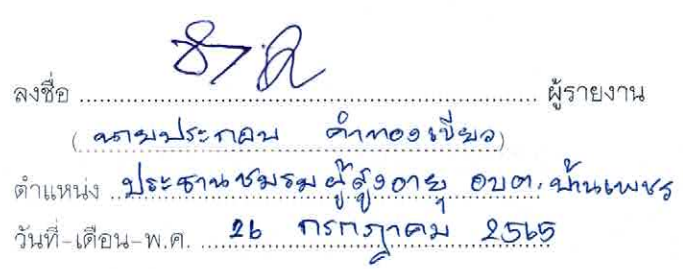 ลงชื่อ ........................ ผู้รายงาน
( นายประกอบ คำทองเขียว )
ตำแหน่ง ประธานชมรมผู้สูงอายุ อบต. บ้านเพชร
วันที่-เดือน-พ.ศ. 26 กรกฎาคม 2565